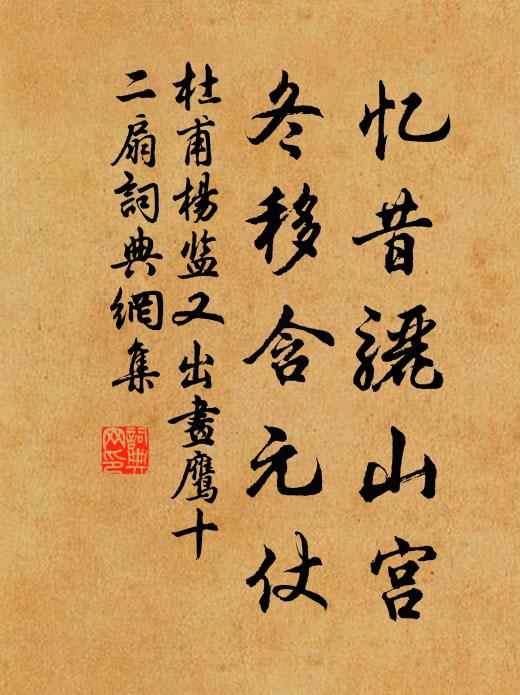 忆昔骊山宫
冬移含元仗
杜甫杨监又出畫鹰十
二扇詞典網集
詞典
网印